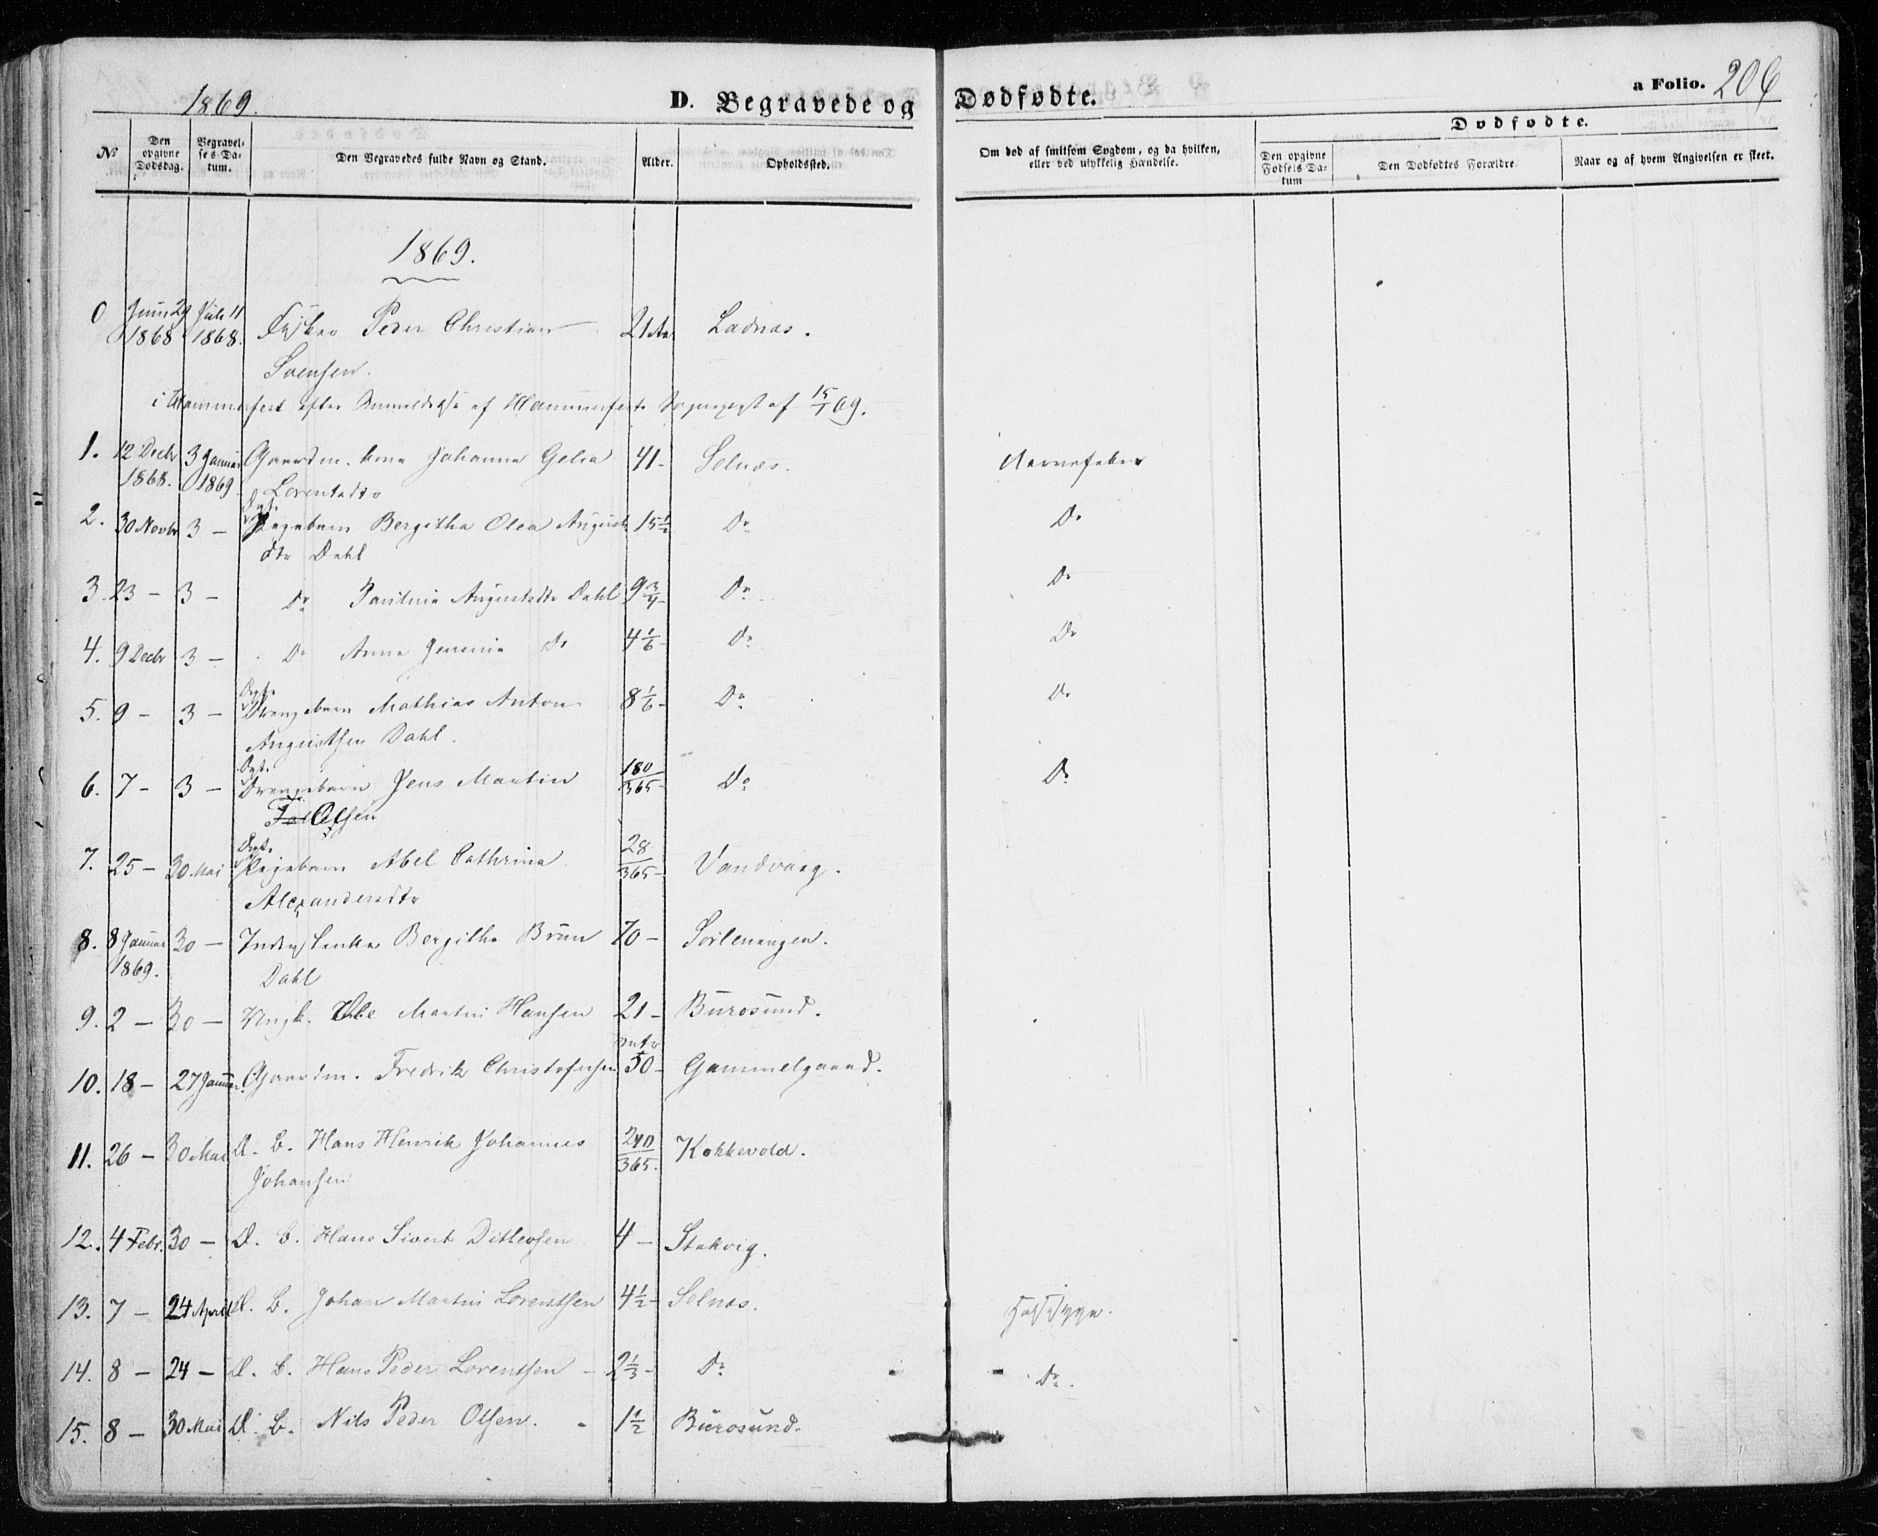 1869.
D. Begravede og Dødfødte.
a Folio. 206
No
Den opgivne Dødsdag.
Begravelses-Datum.
Den Begravedes fulde Navn og Stand.
Alder.
Opholdssted.
Om død af smitsom Sygdom, og da hvilken, eller ved ulykkelig Hændelse.
Dødfødte.
Den opgivne Fødsels Datum
Den Dødfødtes Forældre.
Naar og af hvem Angivelsen er skeet.
1869.
0 Juni 29 1868 Juli 11 1868. Peder Christian 21 Aar Ladnæs.
Svensen.
i Hammerfest efter Anmeldelse af Hammerfest Sognepræst af 15/1 69.
1. 12 Decbr 1868. 3 Januar 1869 Gaardm. kone Johanna Gelia 41 - Selnæs. Nervefeber
Lorentsdtr
2. 30 Novbr 3 - Dpt. Pigebarn Bergitha Olea August 15 1/2 Do Do
dtr Dahl
3. 23 - 3 - Do Paulina Augustsdtr Dahl 9 3/4 - Do Do
4. 9 Decbr 3 - Do Anna Jensina Do 4 1/6 - Do Do
5. 9 - 3 - Dpt. Drengebarn Mathias Anton 8 1/6 - Do Do
Augustsen Dahl.
6. 7 - 3 - Dpt. Drengebarn Jens Martin 180/365 - Do Do
Olsen
7. 25 - 30 Mai Dpt. Pigebarn Abel Cathrina 28/365 - Vandvaag.
Alexandersdtr
8. 8 Januar 1869. 30 - Inders. Enke Bergitha Brun 70 - Sørlenangen.
Dahl
9. 2 - 30 - Ungk. Ole Martin Hansen 21 - Burøsund.
10. 18 - 27 Januar Gaardm. Fredrik Christofersen 50 - Gammelgaard.
11. 26 - 30 Mai D. B. Hans Henrik Johannes 240/365. Kokkevold.
Johansen
12. 4 Febr. 30 - D. B. Hans Sivert Ditlevsen 4 - Stakvig.
13. 7 - 24 April D. B. Johan Martin Lorentsen 4 1/2 - Selnæs. Halssyge.
14. 8 - 24 - D. B. Hans Peder Lorentsen - 2 1/3 - Do Do.
15. 8 - 30 Mai D. B. Nils Peder Olsen. - 1 1/2 Burøsund.